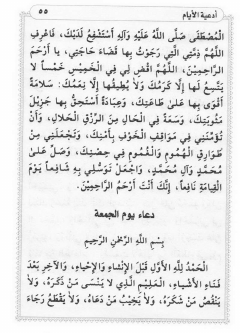 أدعية الأيام ٥٥
الْمُصْطَفَى صَلَّى اللَّهُ عَلَيْهِ وَآلِهِ أَسْتَشْفِعُ لَدَيْكَ، فَاعْرِفِ
اللَّهُمَّ ذِمَّتِيَ الَّتِي رَجَوْتُ بِهَا قَضَاءَ حَاجَتِي، يَا أَرْحَمَ
الرَّاحِمِيْنَ، اللَّهُمَّ اقْضِ لِي فِي الْخَمِيْسِ خَمْساً لاَ
يَتَّسِعُ لَهَا إِلاَّ كَرَمُكَ وَلاَ يُطِيقُهَا إِلاَّ نِعَمُكَ: سَلاَمَةً
أَقْوَى بِهَا عَلَىٰ طَاعَتِكَ، وَعِبَادَةً أَسْتَحِقُّ بِهَا جَزِيْلَ
مَثُوبَتِكَ، وَسَعَةً فِي الْحَالِ مِنَ الرِّزْقِ الْحَلاَلِ، وَأَنْ
تُؤْمِنَنِي فِي مَوَاقِفِ الْخَوْفِ بِأَمْنِكَ، وَتَجْعَلَنِي مِنْ
طَوَارِقِ الْهُمُومِ وَالْغُمُومِ فِي حِصْنِكَ، وَصَلِّ عَلَىٰ
مُحَمَّدٍ وَآلِ مُحَمَّدٍ، وَاجْعَلْ تَوَسُّلِي بِهِ شَافِعاً يَوْمَ
الْقِيَامَةِ نَافِعاً، إِنَّكَ أَنْتَ أَرْحَمُ الرَّاحِمِيْنَ.
دعاء يوم الجمعة
بِسْمِ اللَّهِ الرَّحْمٰنِ الرَّحِيْمِ
الْحَمْدُ لِلَّهِ الأَوَّلِ قَبْلَ الإِنْشَاءِ وَالإِحْيَاءِ، وَالآخِرِ بَعْدَ
فَنَاءِ الأَشْيَاءِ، الْعَلِيْمِ الَّذِي لاَ يَنْسَى مَنْ ذَكَرَهُ، وَلاَ
يَنْقُصُ مَنْ شَكَرَهُ، وَلاَ يُخَيِّبُ مَنْ دَعَاهُ، وَلاَ يَقْطَعُ رَجَاءَ